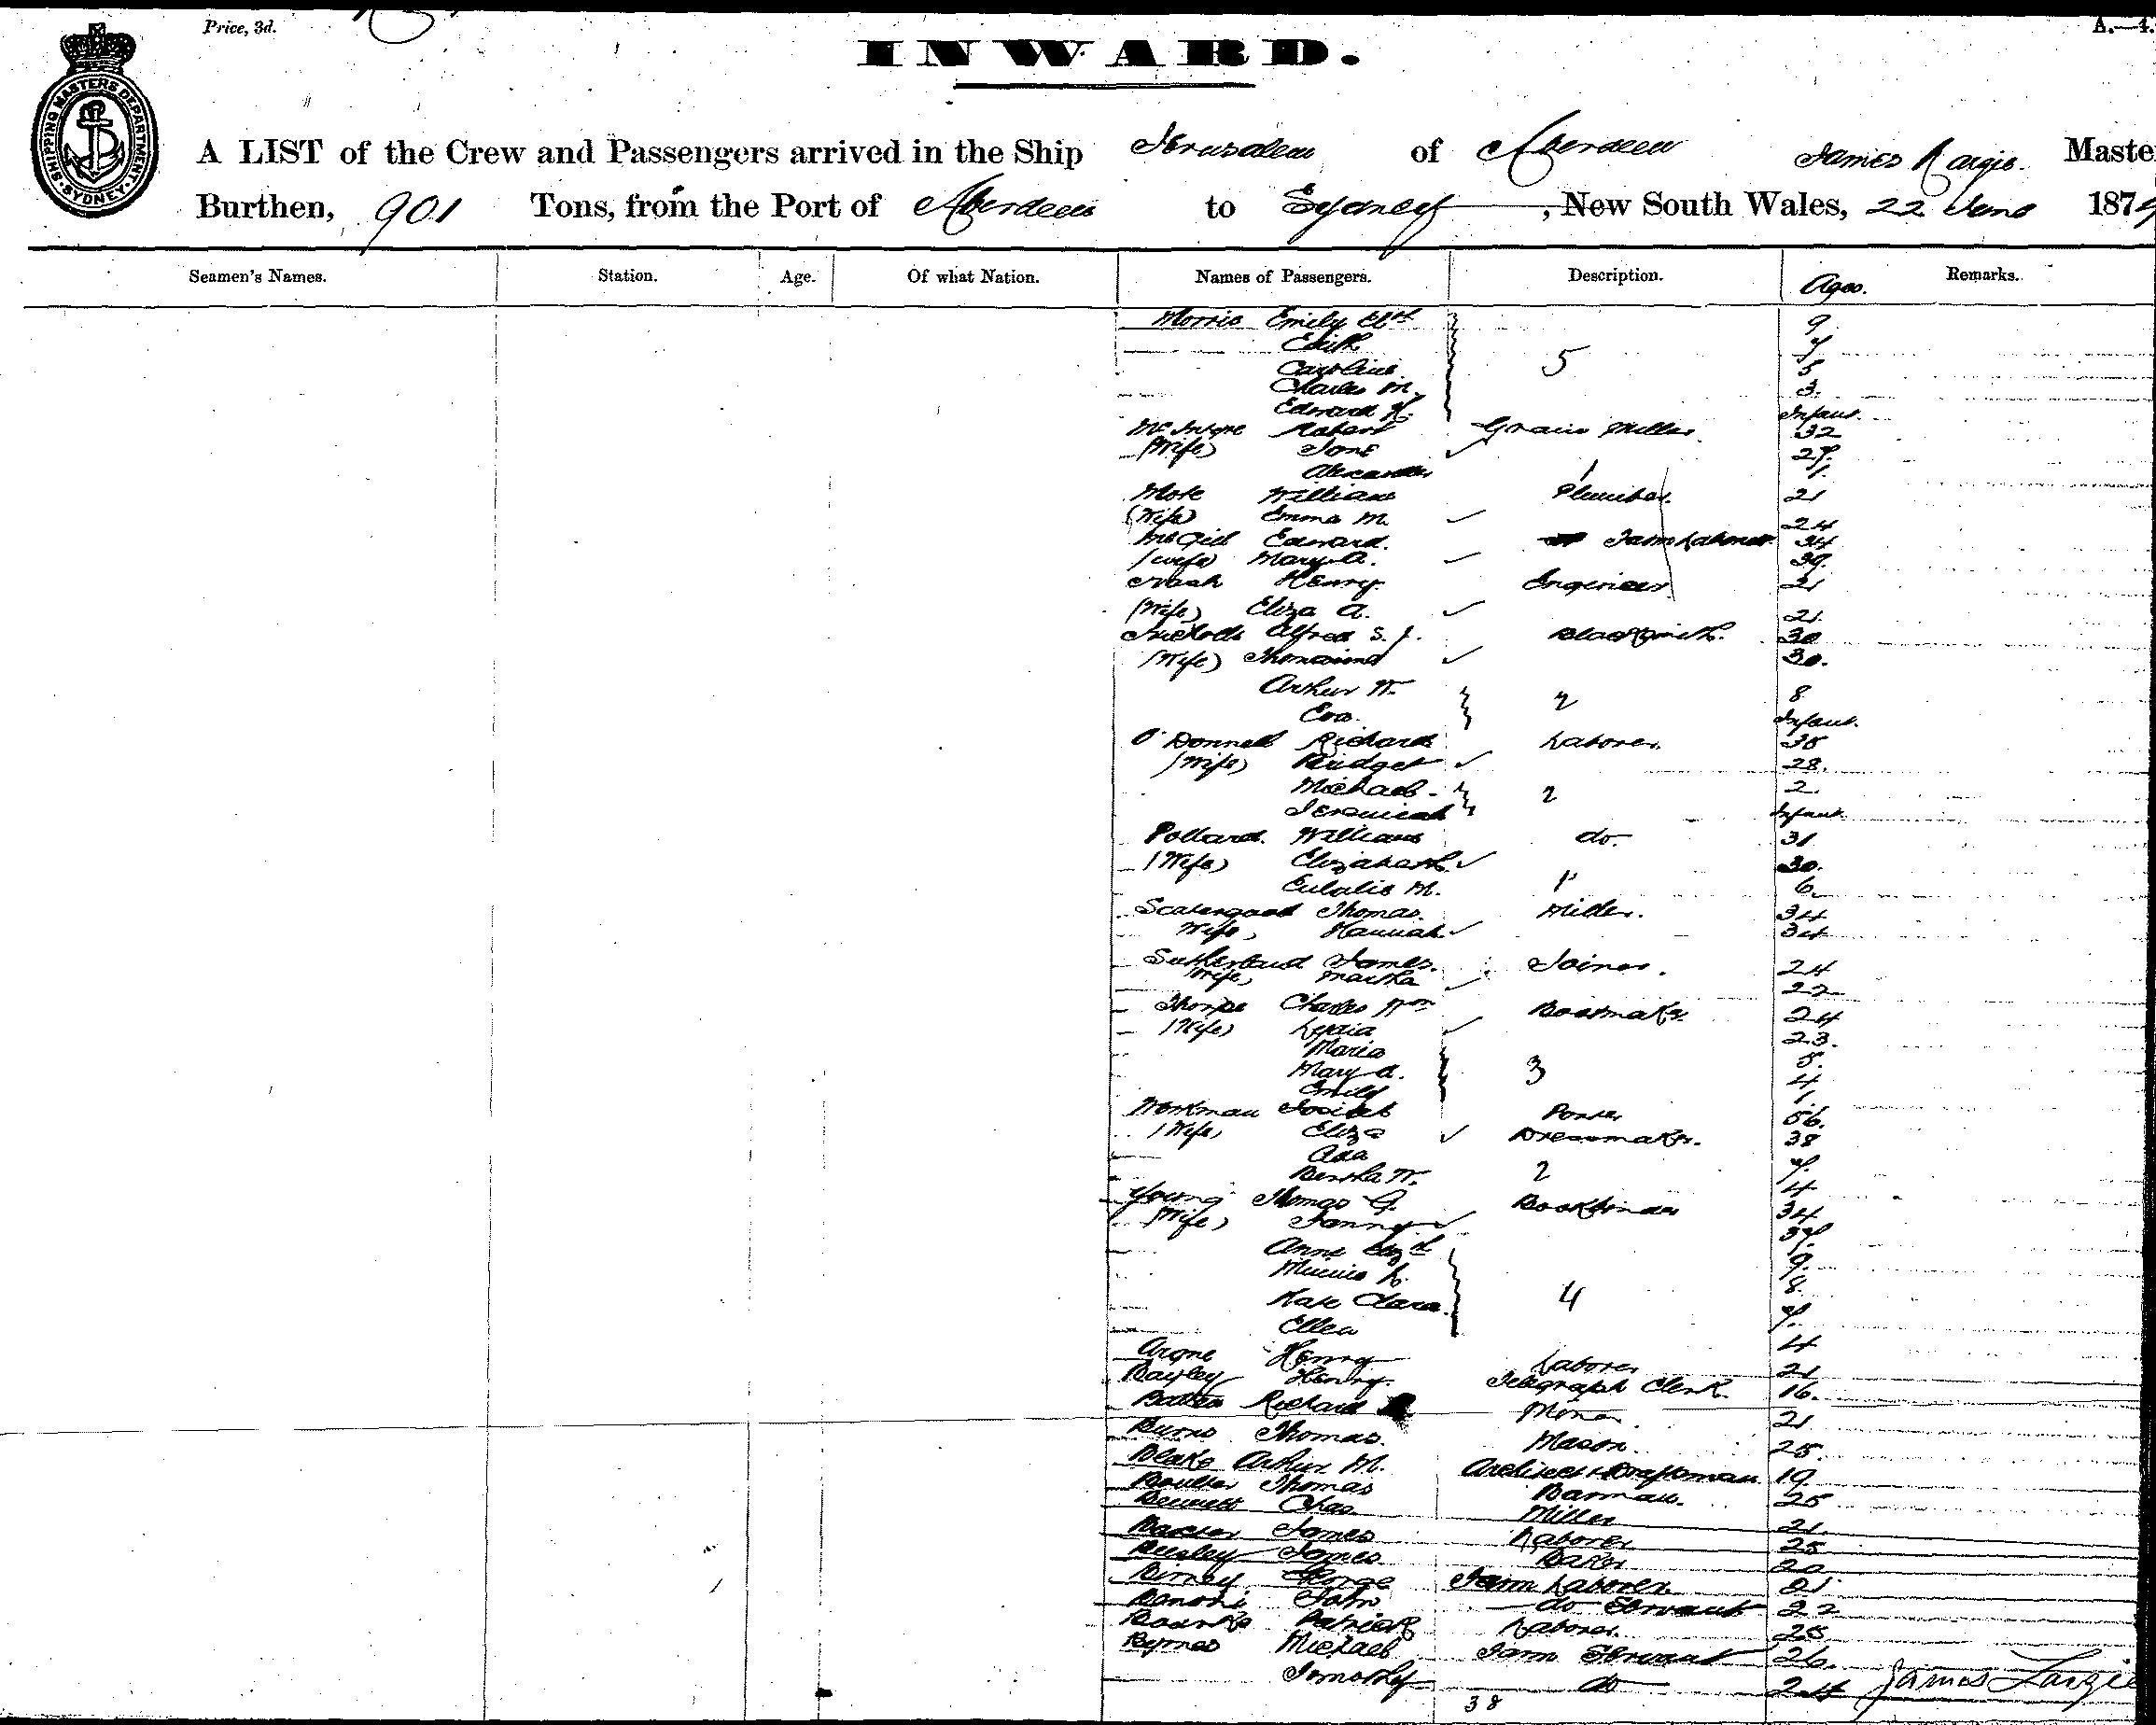 Price, 3d.
A.—4.
INWARD.
SHIPPING MASTERS DEPARTMENT SYDNEY
A LIST of the Crew and Passengers arrived in the Ship Jerusalem of Aberdeen James Largie Master
Burthen, 901 Tons, from the Port of Aberdeen to Sydney, New South Wales, 22 June 187
Seamen's Names. Station. Age. Of what Nation. Names of Passengers. Description. Ages. Remarks.
Morris Emily Elzth 9
Edith 7
Caroline 5 5
Charles M. 3
Edward H. Infant.
McIntyre Robert Grain Miller 32
(Wife) Jane 27
Alexander 1 1
More William Plumber 21
(Wife) Emma M. 24
McGill Edward. Farm Laborer 34
(Wife) Mary A. 39
Nash Henry. Engineer 21
(Wife) Eliza A. 21.
Nicholls Alfred S. J. Blacksmith. 30
(Wife) Thomasina 30.
Arthur W. 2 8
Eva. Infant.
O'Donnell Richard Laborer 35
(Wife) Bridget 28.
Michael 2 2
Jeremiah Infant
Pollard. William do. 31
(Wife) Elizabeth 30.
Eulalie M. 1 6
Thomas. Miller. 34
Wife, Hannah 34
Sutherland James. Joiner. 24
Wife, Martha 22
Thorpe Charles Wm Bootmaker 24
(Wife) Lydia 23.
Maria 5.
Mary A. 3 4
Emily 1
Workman Josiah Porter 56.
(Wife) Eliza Dressmaker. 38
Ada 7.
Bertha W. 2 4
Young Thomas G. Bookbinder 34
(Wife) Fanny 37.
Anne Elizth 9.
Minnie L. 8.
Kate Clara. 4 7.
Ellen 4
Henry Laborer 21
Bayley Henry. Telegraph Clerk. 16.
Richard Miner. 21
Burns Thomas. Mason. 25.
Blake Arthur M. Architect & Draftsman 19
Boulter Thomas Barman. 25
Bennett Chas. Miller 21.
Baxter James Laborer 25
Beesley James Baker 20
Birney George Farm Laborer 21
John do Servant 22
Bourke Patrick Laborer 25
Byrnes Michael Farm Servant 26.
Timothy do 24
38
James Largie